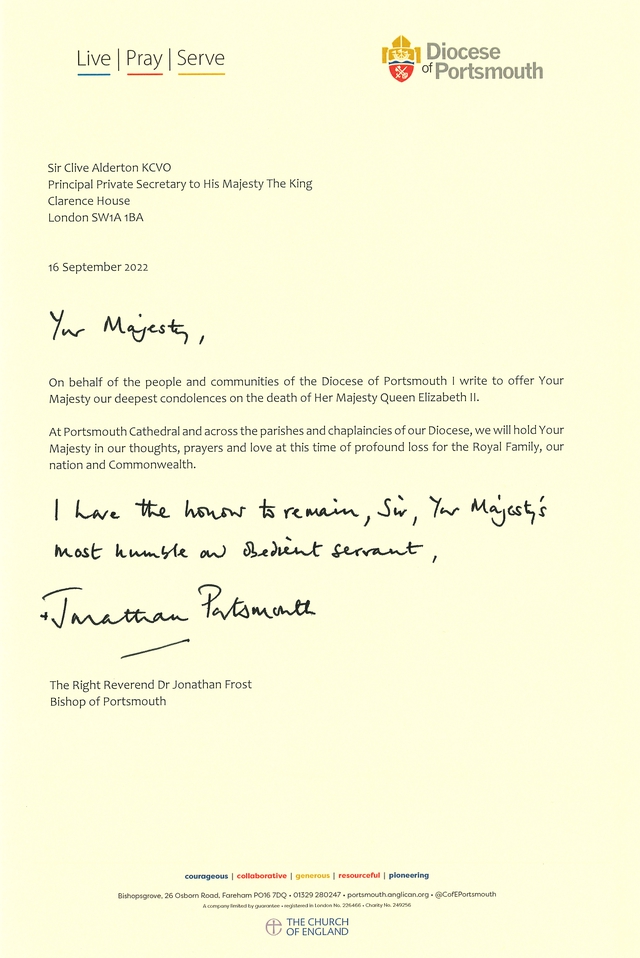 Live | Pray | Serve
Diocese
of Portsmouth
Sir Clive Alderton KCVO
Principal Private Secretary to His Majesty The King
Clarence House
London SW1A 1BA
16 September 2022
Your Majesty,
On behalf of the people and communities of the Diocese of Portsmouth I write to offer Your
Majesty our deepest condolences on the death of Her Majesty Queen Elizabeth II.
At Portsmouth Cathedral and across the parishes and chaplaincies of our Diocese, we will hold Your
Majesty in our thoughts, prayers and love at this time of profound loss for the Royal Family, our
nation and Commonwealth.
I have the honour to remain, Sir, Your Majesty's
most humble and obedient servant,
+Jonathan Portsmouth
The Right Reverend Dr Jonathan Frost
Bishop of Portsmouth
courageous | collaborative | generous | resourceful | pioneering
Bishopsgrove, 26 Osborn Road, Fareham PO16 7DQ • 01329 280247 • portsmouth.anglican.org • @CofEPortsmouth
A company limited by guarantee • registered in London No. 226466 • Charity No. 249256
THE CHURCH
OF ENGLAND